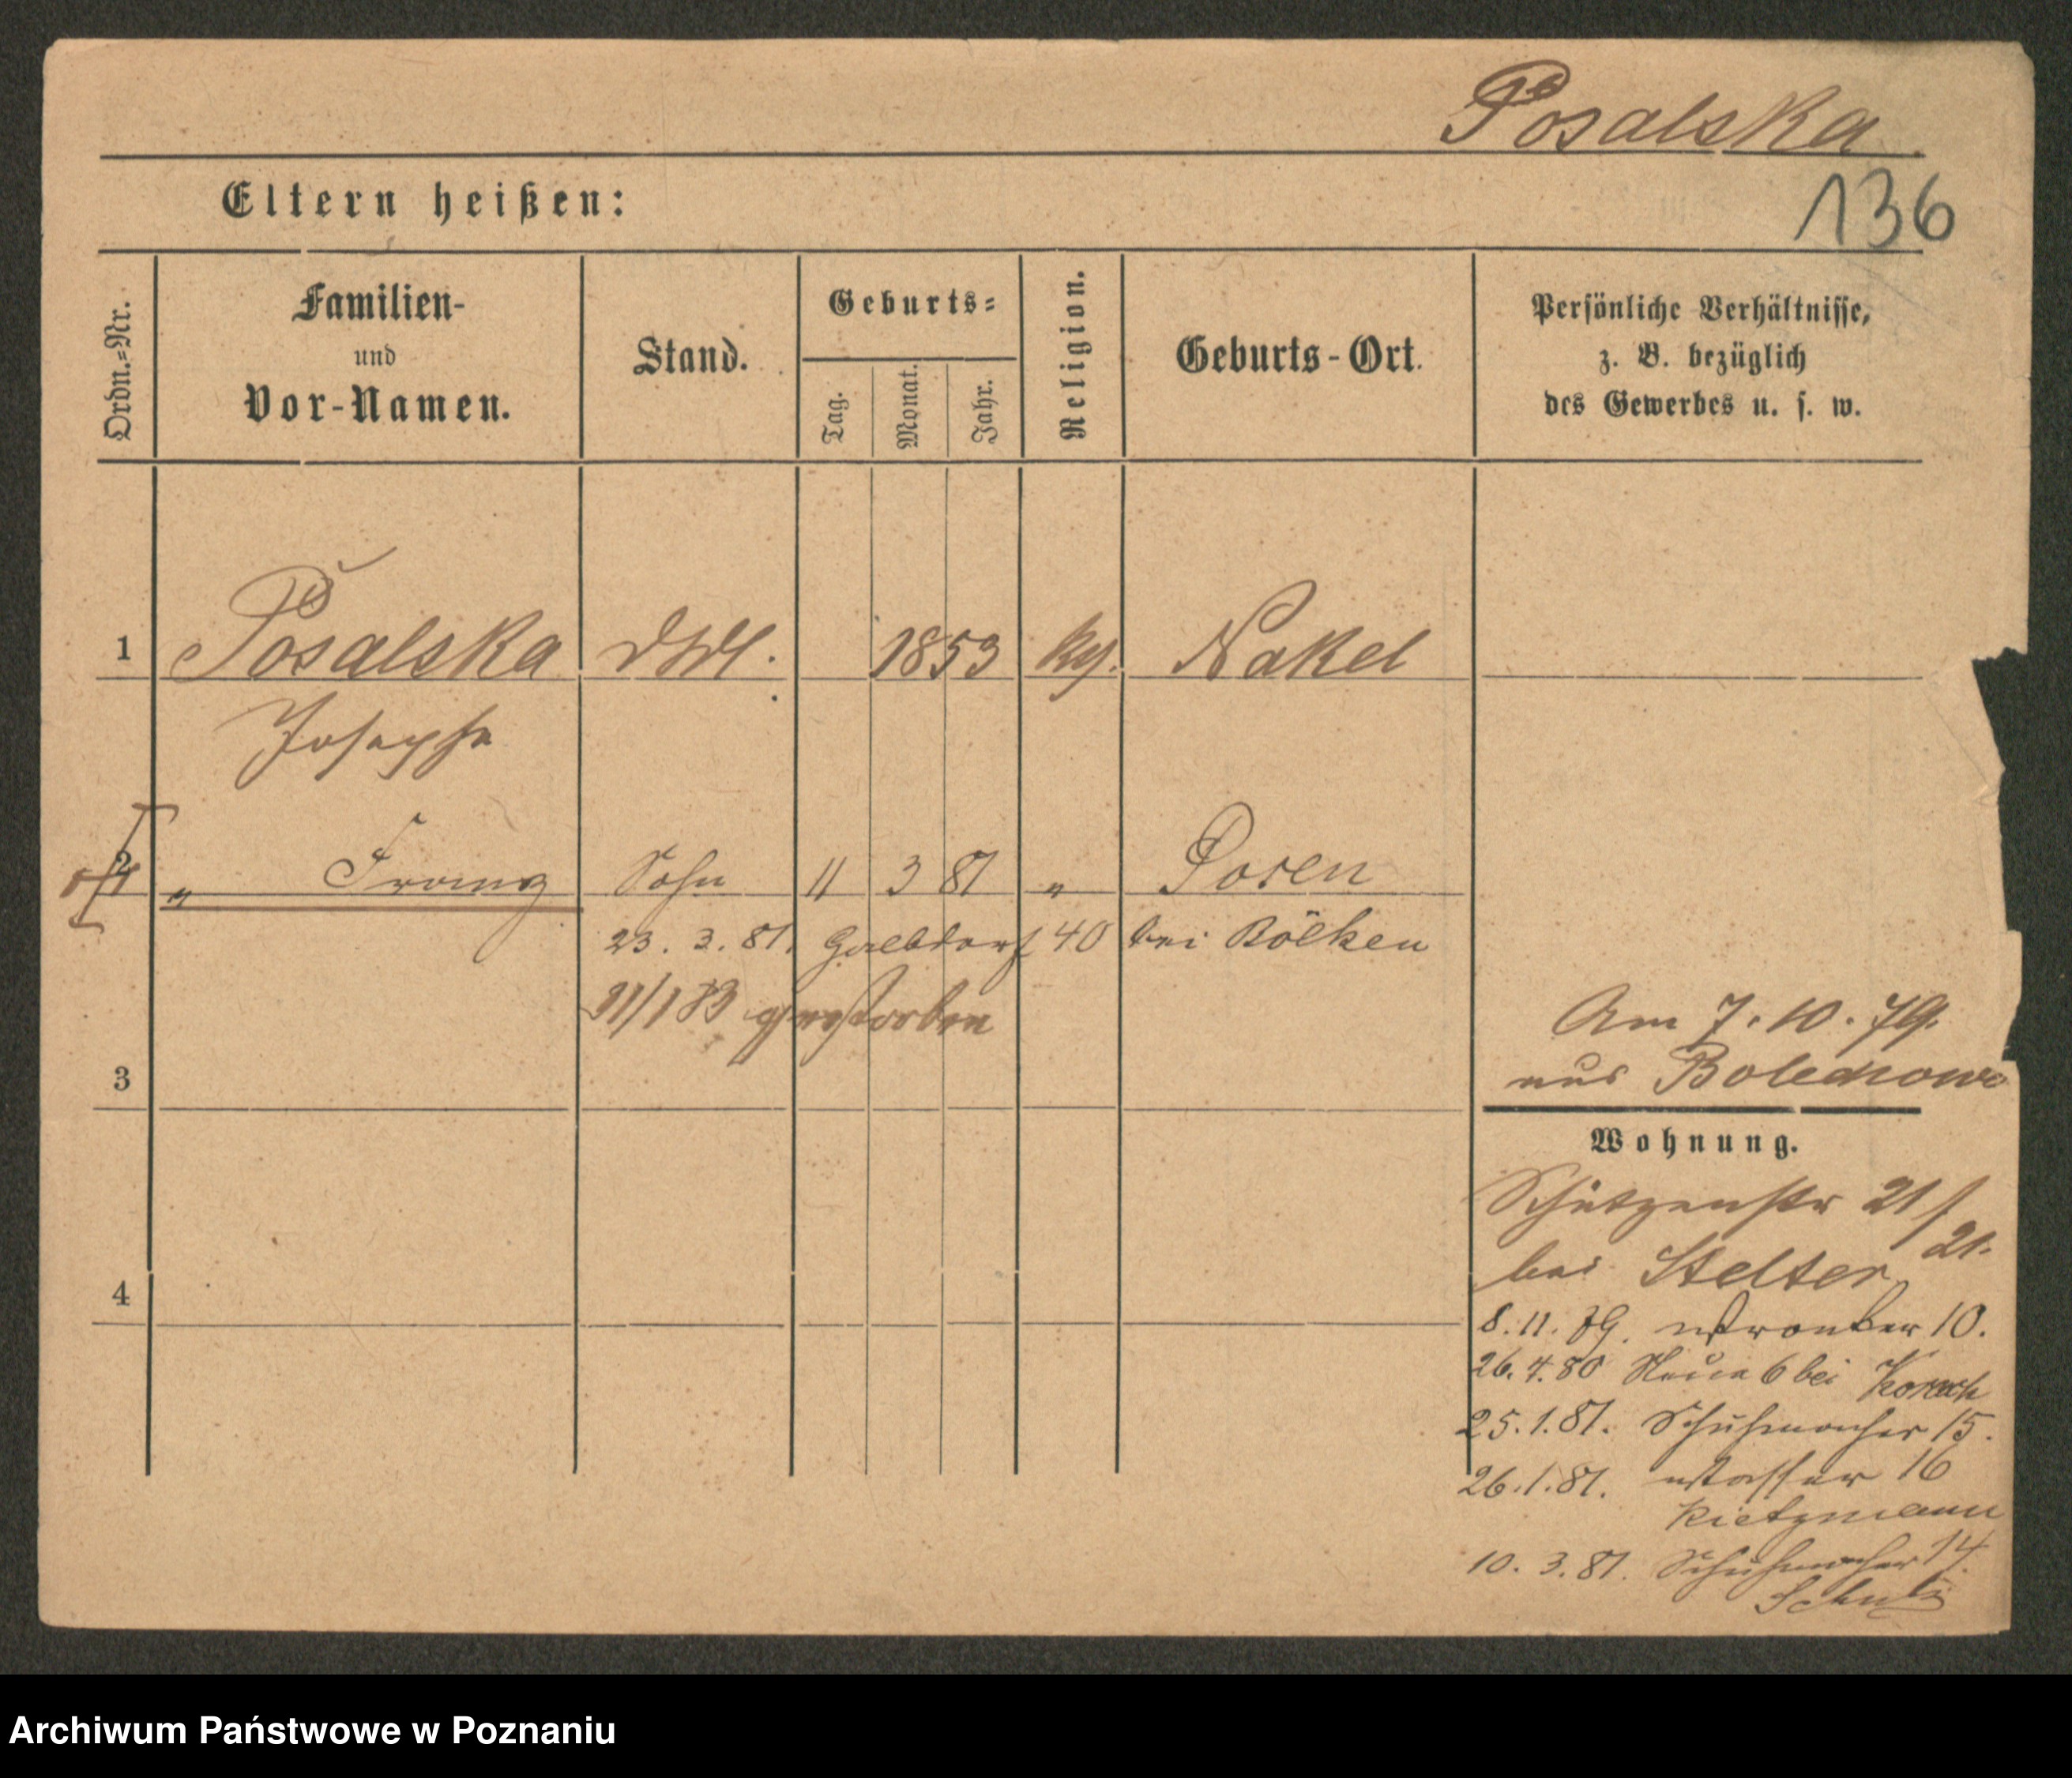 Posalska.
136
Eltern heißen:
Ordn.=Nr.
Familien-
und
Vor-Namen.
Stand.
Geburts=
Tag.
Monat.
Jahr.
Religion.
Geburts-Ort.
Persönliche Verhältnisse,
z. B. bezüglich
des Gewerbes u. s. w.
1 Posalska 1853 Nakel
Josepha
2 " Franz Sohn 11 3 81 " Posen
23. 3. 81. 40 bei Bölken
gestorben
3
Am 7. 10. 79.
aus Bolechowo
Wohnung.
Schützenstr 21/
21.
bei Stelter
8. 11. 79. Wronker 10.
26. 4. 80 Neue 6 bei
25. 1. 81. Schuhmacher 15.
4
26. 1. 81. Wasser 16
Rietzmann
10. 3. 81. Schuhmacher 14.
Schulz
Archiwum Państwowe w Poznaniu